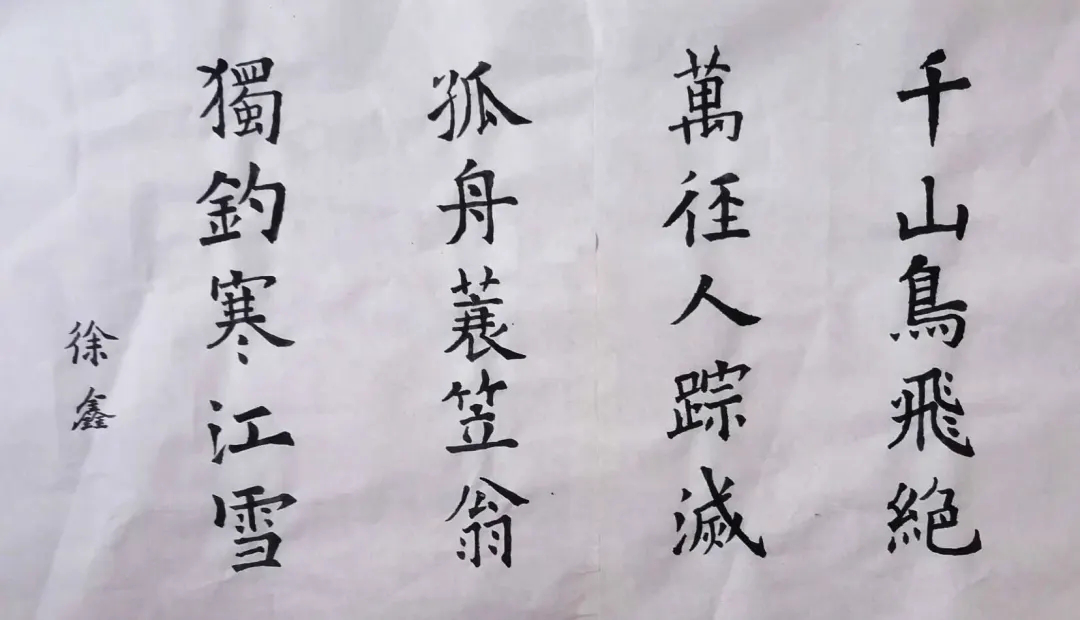 千山鳥飛絕
萬径人踪滅
孤舟蓑笠翁
獨釣寒江雪
徐鑫